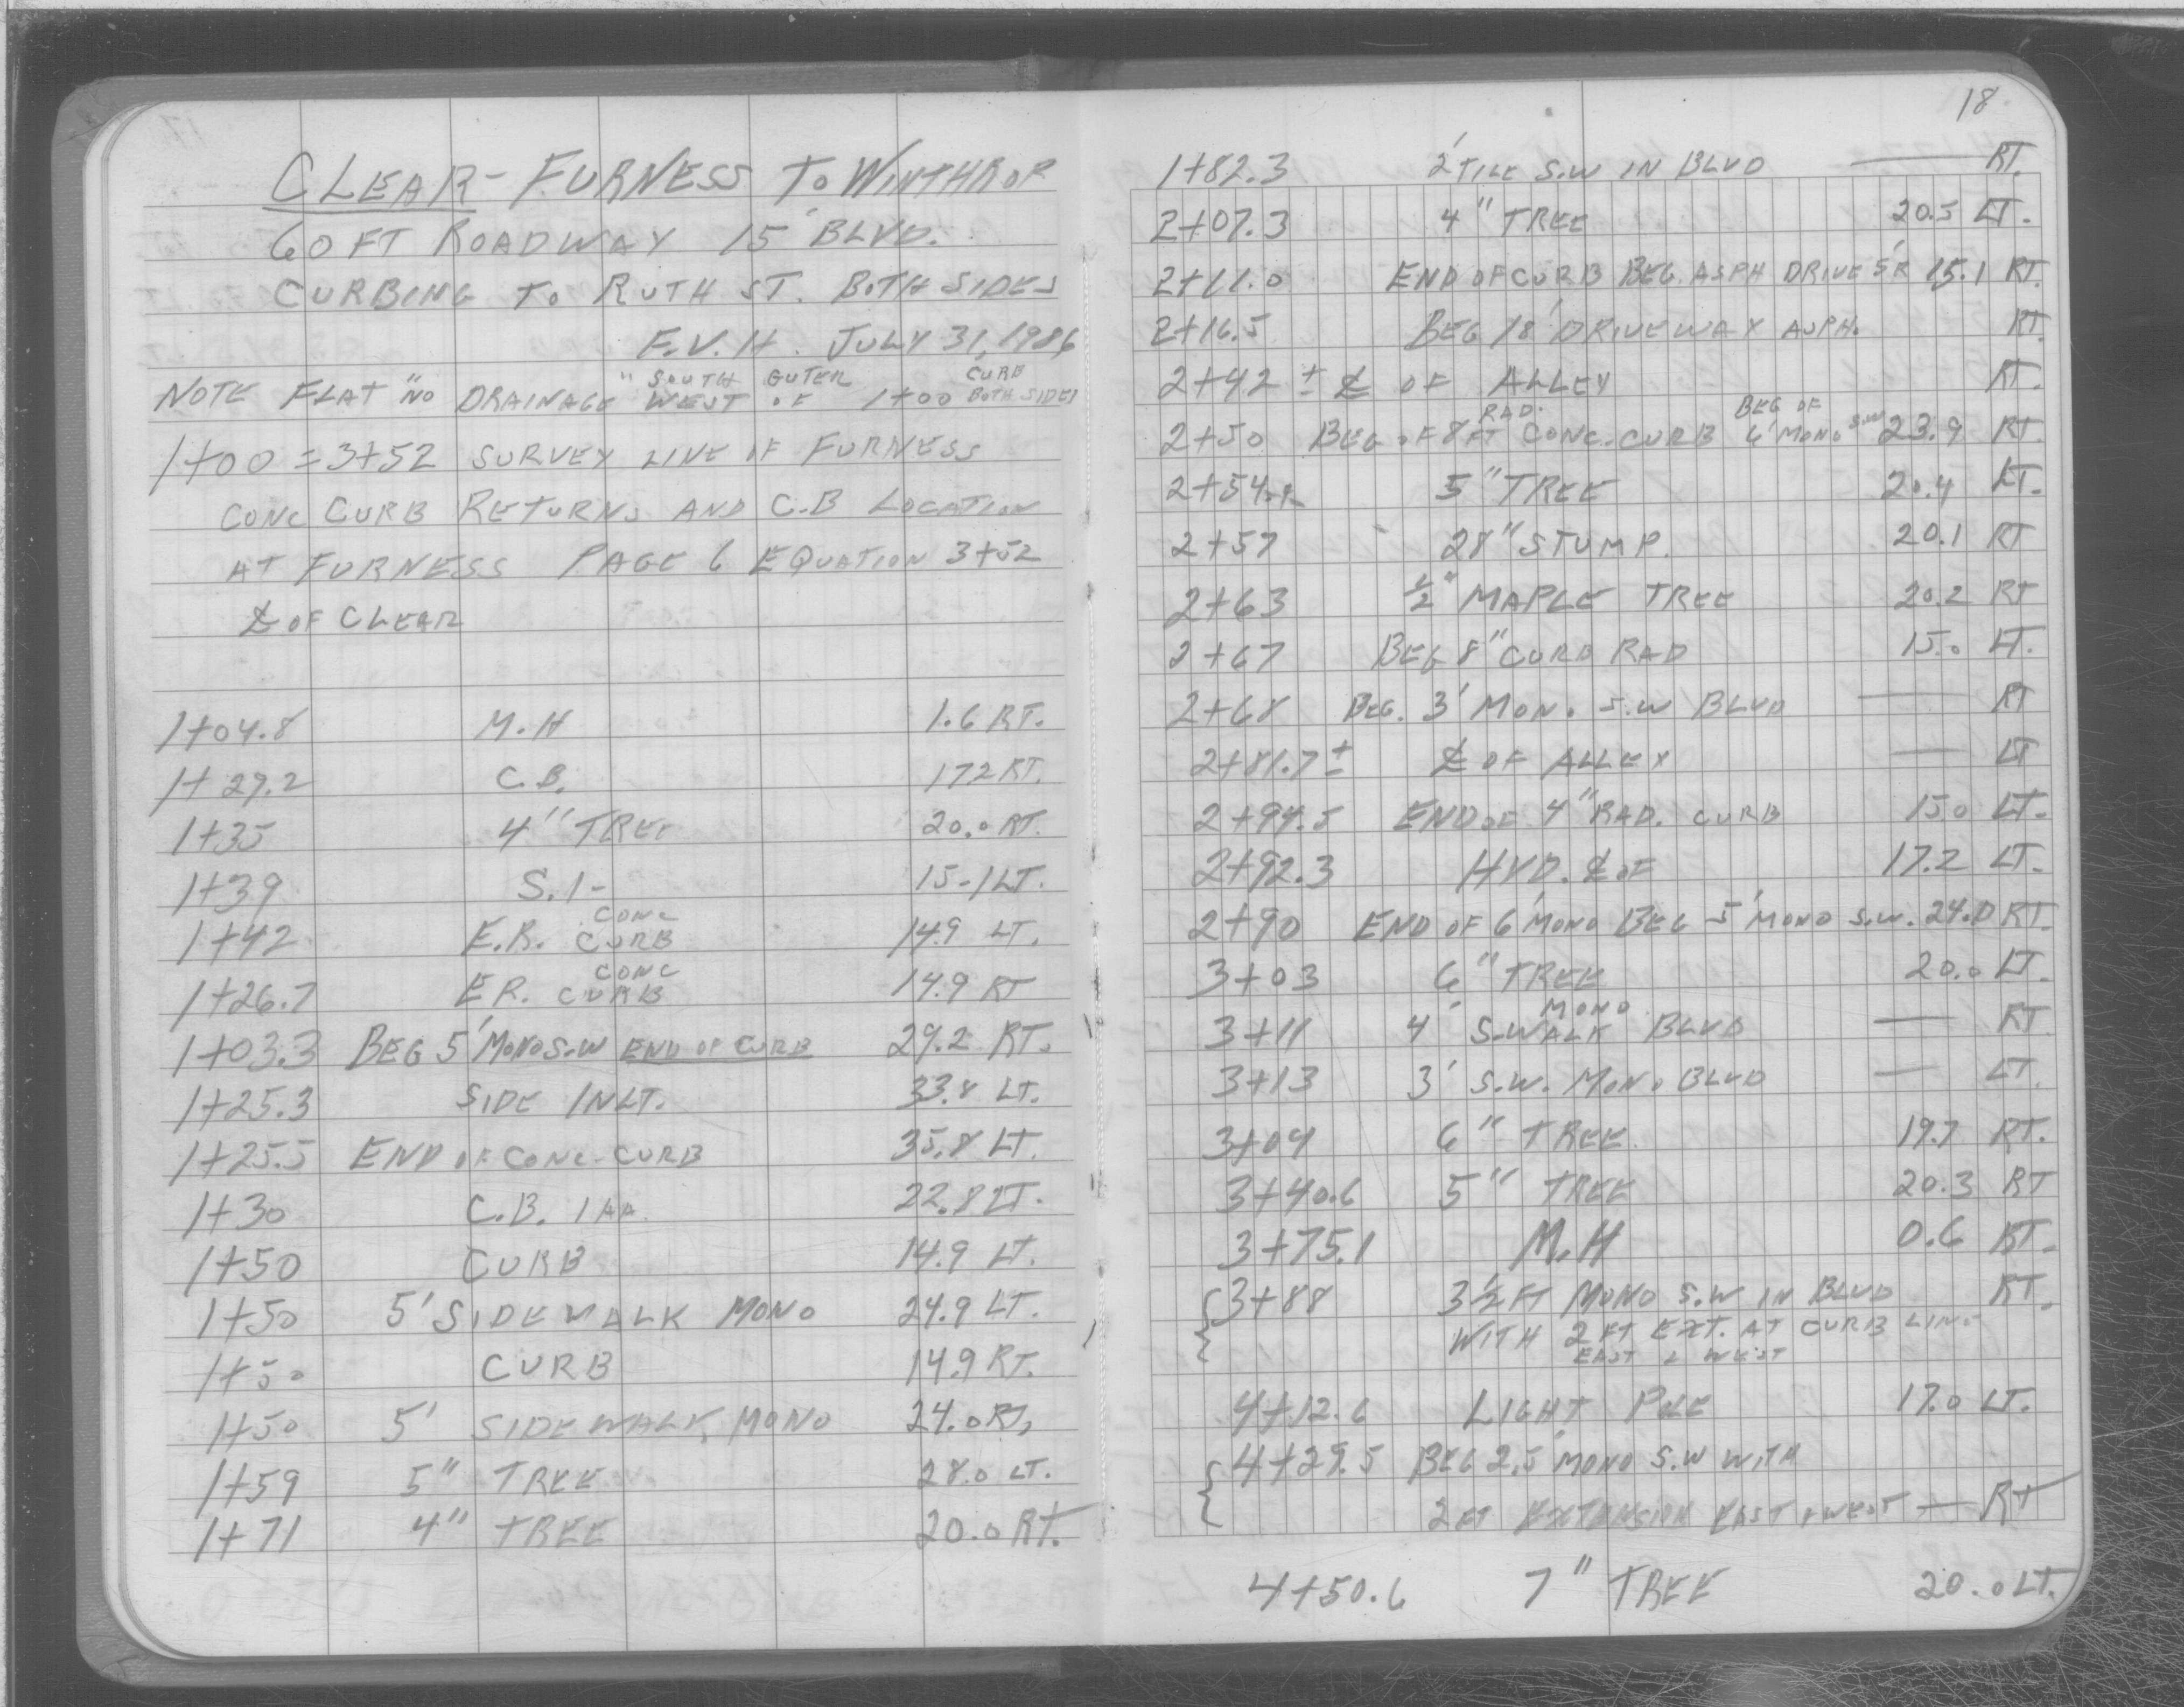 CLEAR - FURNESS TO WINTHROP
60 FT ROADWAY 15' BLVD.
CURBING TO RUTH ST. BOTH SIDES
F.V.H. JULY 31, 1986
NOTE FLAT "NO DRAINAGE" SOUTH GUTER WEST OF 1+00 CURB BOTH SIDES
1+00 = 3+52 SURVEY LINE OF FURNESS
CONC CURB RETURNS AND C.B LOCATION
AT FURNESS PAGE 6 EQUATION 3+52
℄ OF CLEAR
1+04.8 M.H 1.6 RT.
1+29.2 C.B. 172 RT.
1+35 4" TREE 20.0 RT.
1+39 S.I- 15-1 LT.
1+42 E.R. CONC CURB 14.9 LT.
1+26.7 E.R. CONC CURB 14.9 RT
1+03.3 BEG 5' MONO S.W END OF CURB 29.2 RT.
1+25.3 SIDE INLT. 33.8 LT.
1+25.5 END OF CONC. CURB 35.8 LT.
1+30 C.B. 22.8 LT.
1+50 CURB 14.9 LT.
1+50 5' SIDEWALK MONO 24.9 LT.
1+50 CURB 14.9 RT.
1+50 5' SIDEWALK, MONO 24.0 RT,
1+59 5" TREE 28.0 LT.
1+71 4" TREE 20.0 RT.
18
1+82.3 2' TILE S.W IN BLVD — RT.
2+07.3 4" TREE 20.5 LT.
2+11.0 END OF CURB BEG. ASPH DRIVE 5'R 15.1 RT.
2+16.5 BEG 18' DRIVEWAY ASPH. RT
2+42 ± ℄ OF ALLEY RT.
2+50 BEG OF 8 FT RAD. CONC. CURB BEG OF 6' MONO S.W 23.9 RT.
2+54. 5" TREE 20.4 LT.
2+57 28" STUMP. 20.1 RT
2+63 ½" MAPLE TREE 20.2 RT
2+67 BEG 8" CURB RAD 15.0 LT.
2+68 BEG. 3' MON. S.W BLVD — RT
2+81.7 ± ℄ OF ALLEY — LT
2+94.5 END OF 4" RAD. CURB 15.0 LT.
2+92.3 HYD. ℄ OF 17.2 LT.
2+90 END OF 6' MONO BEG 5' MONO S.W. 24.0 RT.
3+03 6" TREE 20.0 LT.
3+11 4' MONO S.WALK BLVD — RT
3+13 3' S.W. MONO BLVD — LT.
3+04 6" TREE 19.7 RT.
3+40.6 5" TREE 20.3 RT
3+75.1 M.H 0.6 RT.
3+88 3½ FT MONO S.W IN BLVD RT.
WITH 2 FT EXT. AT CURB LINE
EAST & WEST
4+12.6 LIGHT POLE 17.0 LT.
4+29.5 BEG 2.5' MONO S.W WITH
2 FT EXTENSION EAST & WEST — RT
4+50.6 7" TREE 20.0 LT.